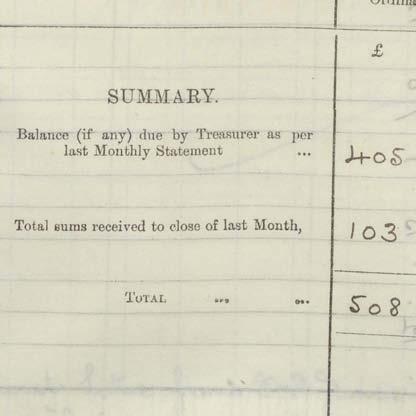 £
SUMMARY.
Balance (if any) due by Treasurer as per
last Monthly Statement ... 405
Total sums received to close of last Month, 103
TOTAL ... ... 508